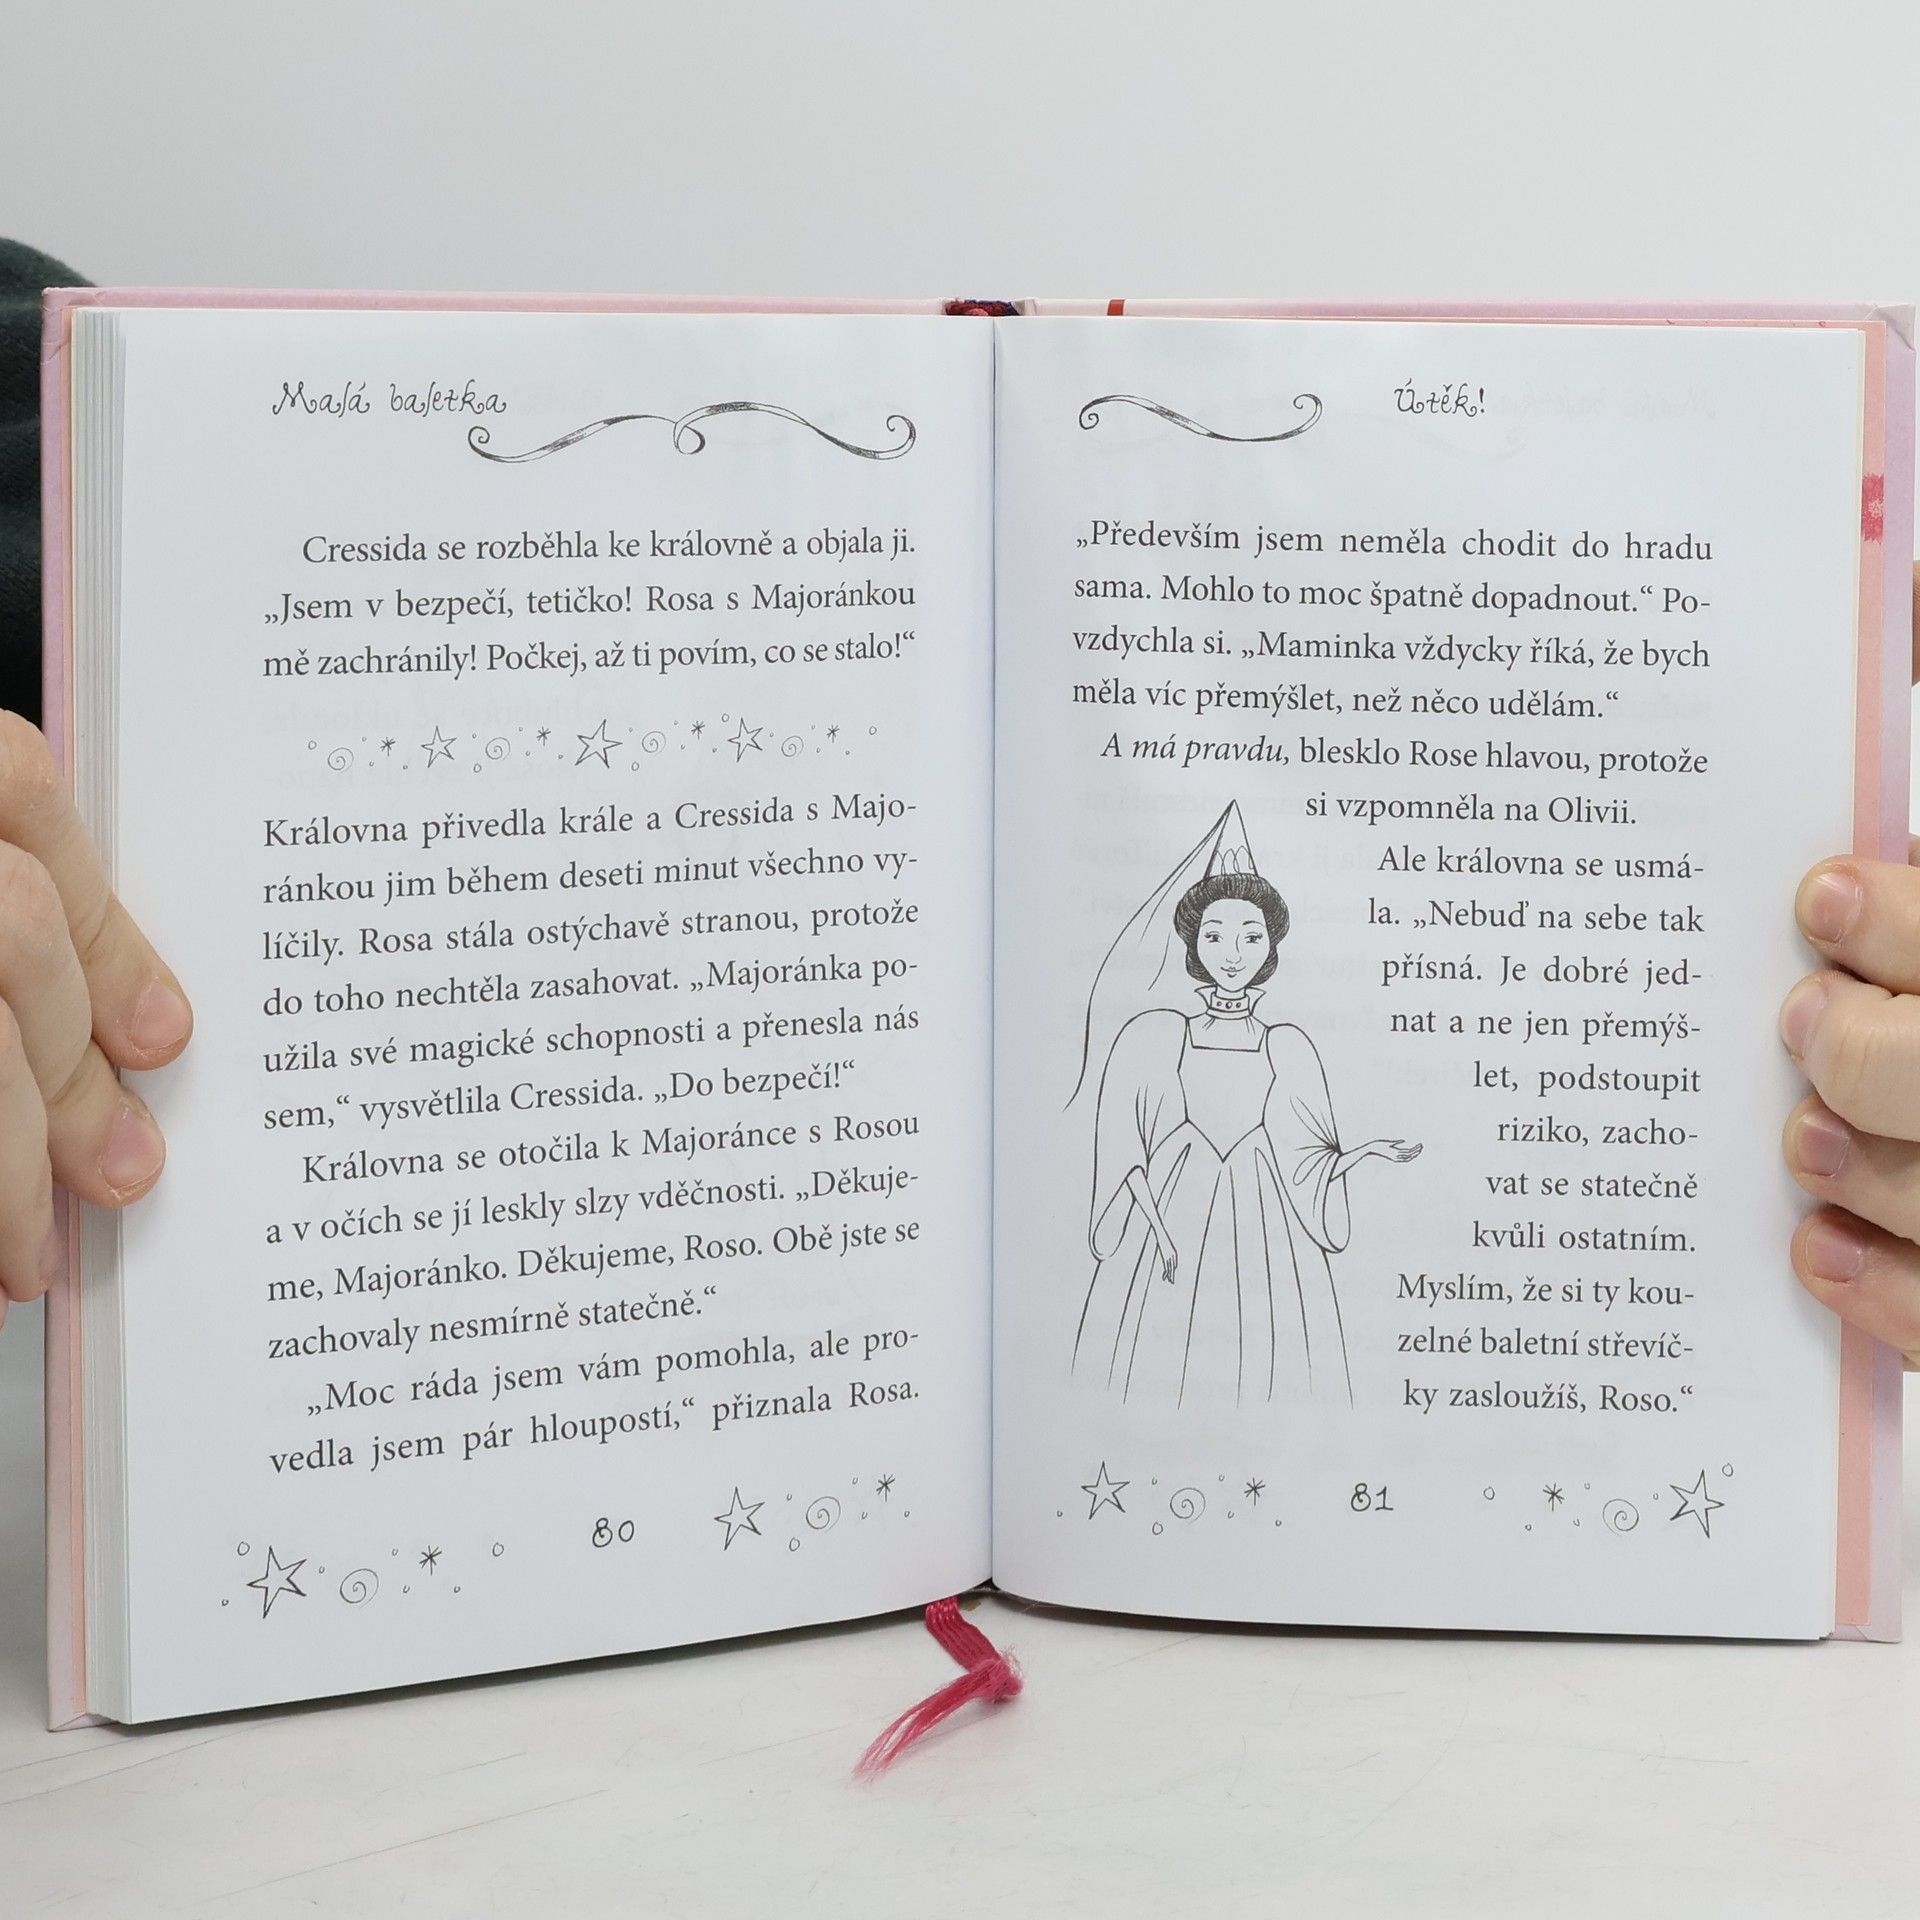 Malá baletka
Cressida se rozběhla ke královně a objala ji.
„Jsem v bezpečí, tetičko! Rosa s Majoránkou
mě zachránily! Počkej, až ti povím, co se stalo!“
Královna přivedla krále a Cressida s Majo-
ránkou jim během deseti minut všechno vy-
líčily. Rosa stála ostýchavě stranou, protože
do toho nechtěla zasahovat. „Majoránka po-
užila své magické schopnosti a přenesla nás
sem,“ vysvětlila Cressida. „Do bezpečí!“
Královna se otočila k Majoránce s Rosou
a v očích se jí leskly slzy vděčnosti. „Děkuje-
me, Majoránko. Děkujeme, Roso. Obě jste se
zachovaly nesmírně statečně.“
„Moc ráda jsem vám pomohla, ale pro-
vedla jsem pár hloupostí,“ přiznala Rosa.
80
Útěk!
„Především jsem neměla chodit do hradu
sama. Mohlo to moc špatně dopadnout.“ Po-
vzdychla si. „Maminka vždycky říká, že bych
měla víc přemýšlet, než něco udělám.“
A má pravdu, blesklo Rose hlavou, protože
si vzpomněla na Olivii.
Ale královna se usmá-
la. „Nebuď na sebe tak
přísná. Je dobré jed-
nat a ne jen přemýš-
let, podstoupit
riziko, zacho-
vat se statečně
kvůli ostatním.
Myslím, že si ty kou-
zelné baletní střevíč-
ky zasloužíš, Roso.“
81